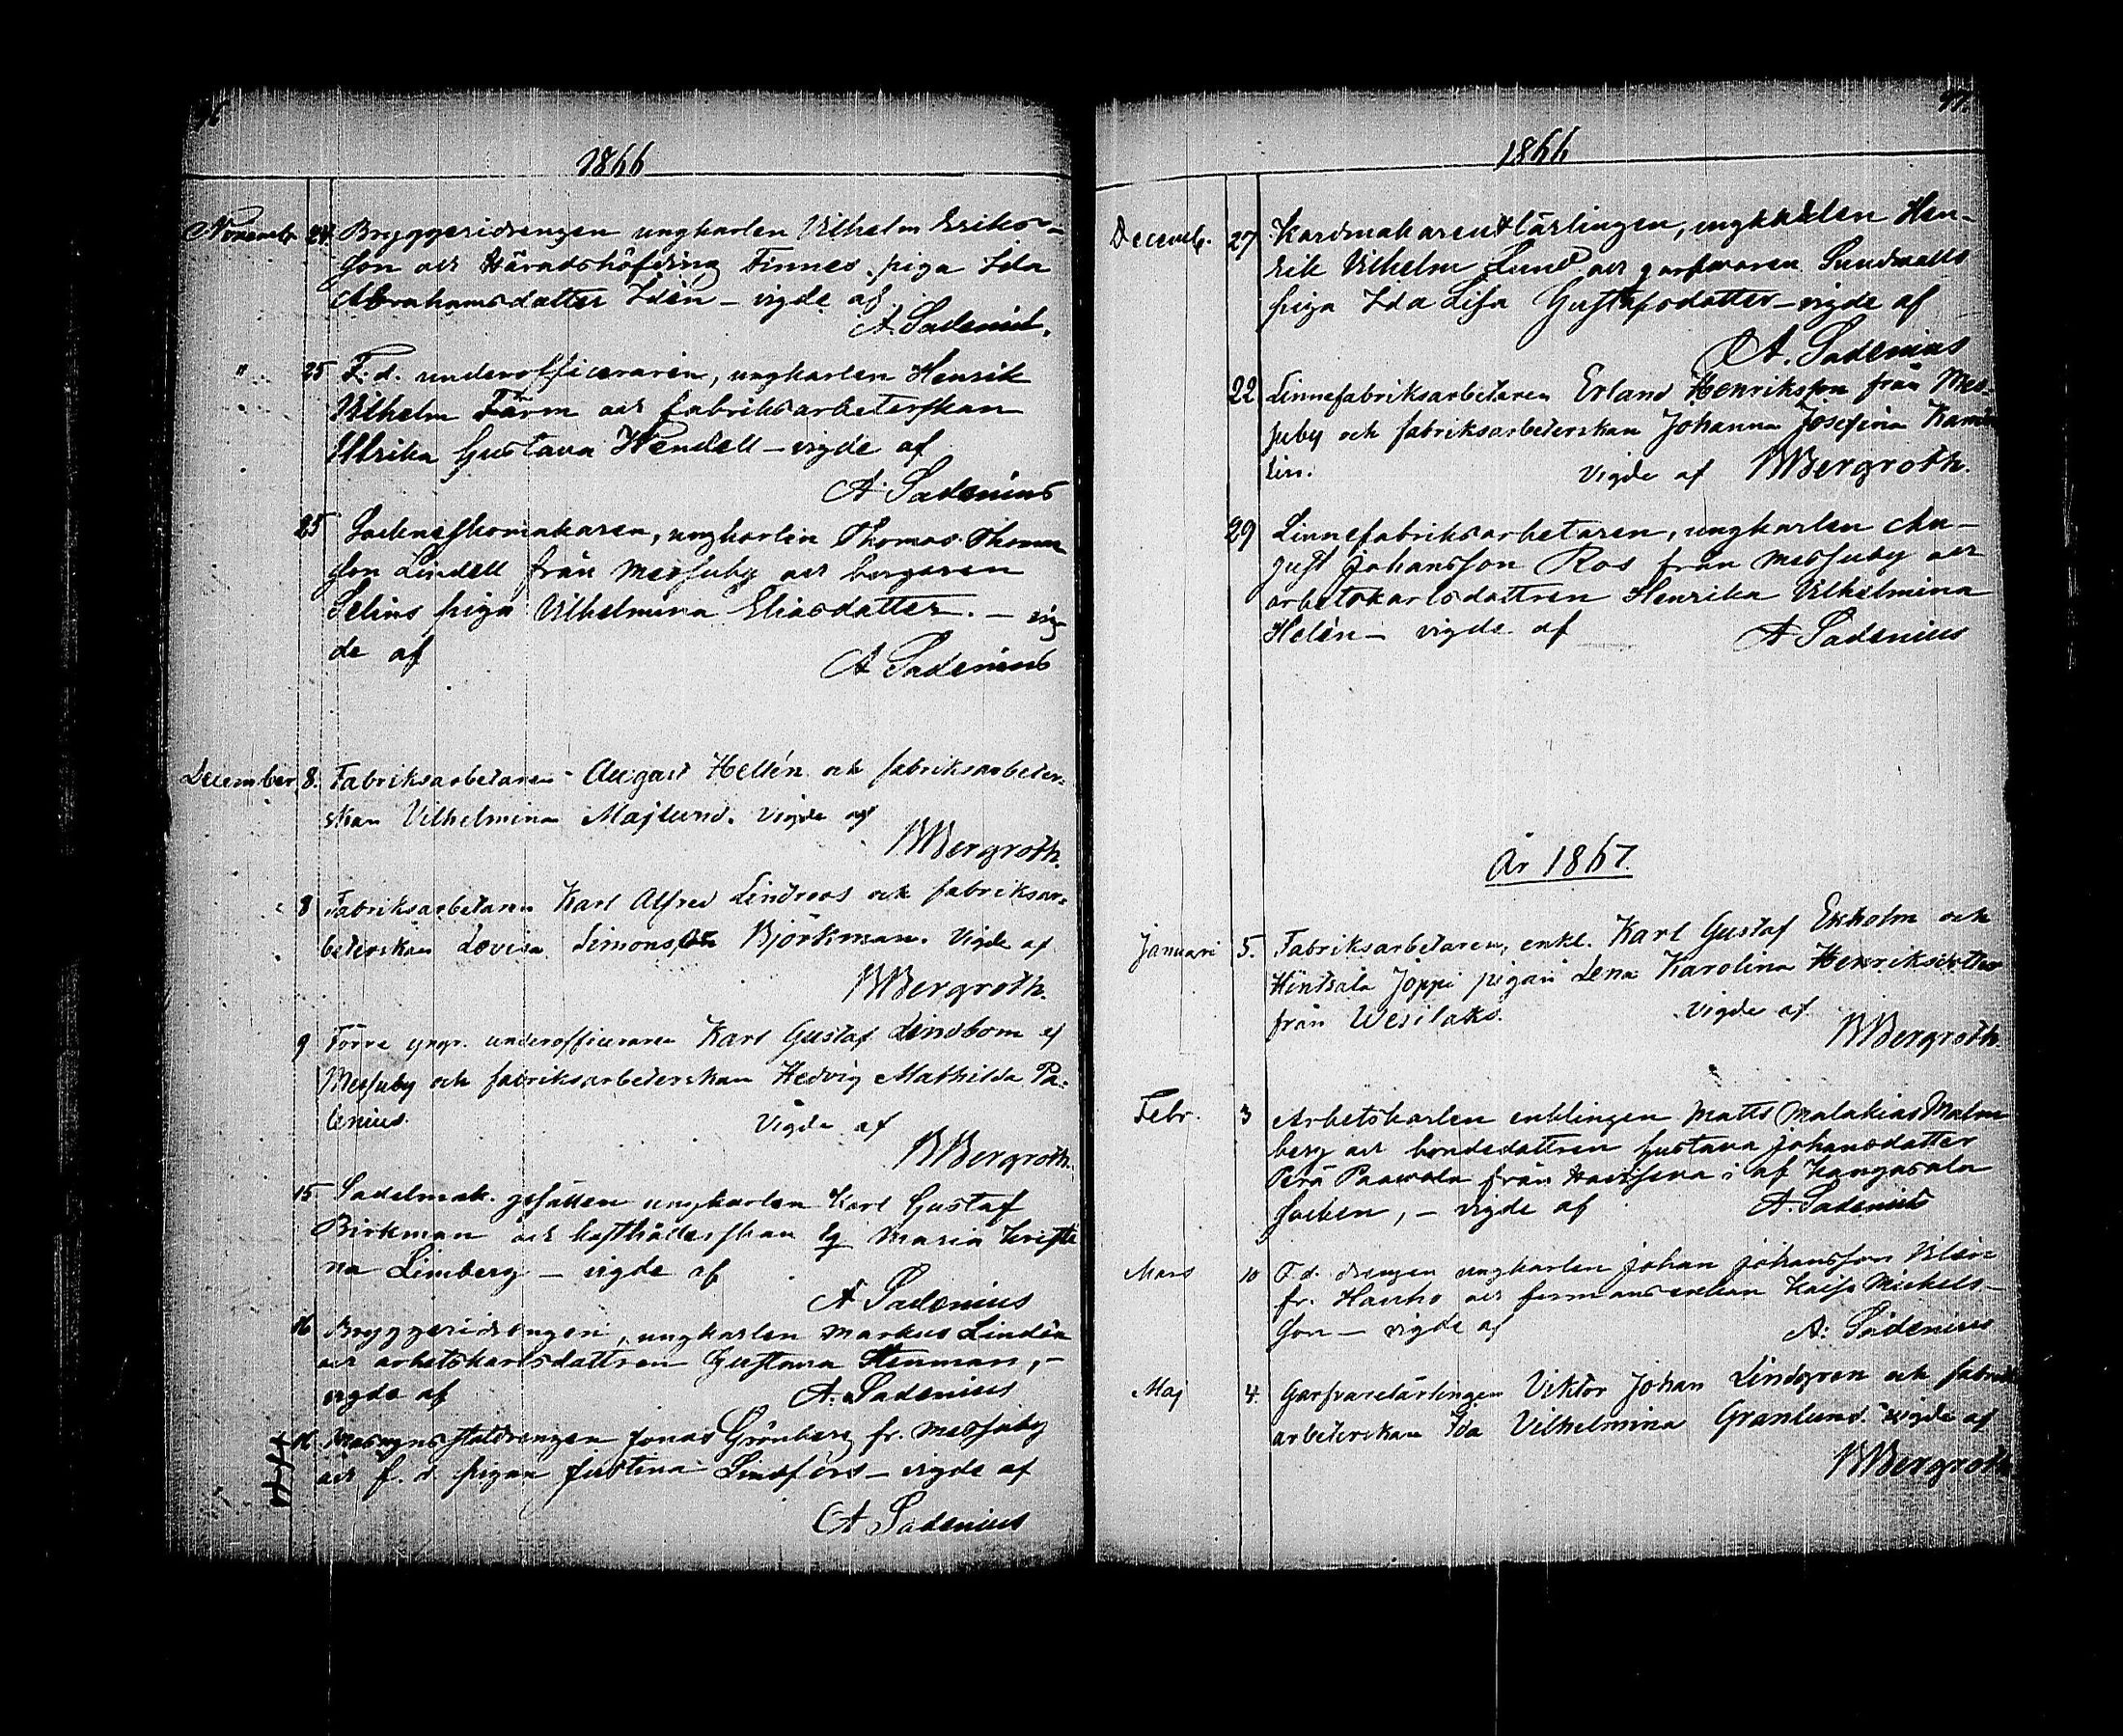 1866
Novemb. 24. Bryggeridrengen ungkarlen Vilhelm Eriks-
son och Häradshöfding Finnes piga Ida
Abrahamsdatter Idén – vigde af
A. Sadenius.
" 25 F. d. underofficeraren, ungkarlen Henrik
Vilhelm Färm och fabriksarbeterskan
Ulrika Gustava Hendell – vigde af
A. Sadenius
25 Sockneskomakaren, ungkarlen Thomas Thomas
son Lindell från Messuby och borgaren
Selins piga Vilhelmina Eliasdatter. – vig-
de af
A Sadenius
December 8. Fabriksarbetaren August Hellén och fabriksarbeter-
skan Vilhelmina Majlund. Vigde af
BBergroth.
8 Fabriksarbetaren Karl Alfred Lindroos och fabriksar-
beterskan Lovisa Simons Björkman. Vigde af
BBergroth.
9 Förre yngr. underofficeraren Karl Gustaf Lindbom
Messuby och fabriksarbeterskan Hedvig Mathilda Pa-
lenius. Vigde af
BBergroth.
15 Sadelmak. gesällen ungkarlen Karl Gustaf
Birkman och Maria Kristi
na Limberg – vigde af
A Sadenius
16 Bryggeridrengen, ungkarlen Markus Lindén
och arbetskarlsdattren Gustava Stenman, –
vigde af A. Sadenius
16 Jonas Grönberg fr. Messuby
och f. d. pigan Justina Lindfors – vigde af
A Sadenius
47.
1866
Decemb. 27 Kardmakarens lärlingen, ungkarlen Hen-
rik Vilhelm Lund och garfvaren Sundvalls
piga Ida Lisa Gustafsdatter – vigde af
A. Sadenius
22 Linnefabriksarbetaren Erland Henriksson från Mes-
suby och fabriksarbeterskan Johanna Josefina
Vigde af BBergroth.
29 Linnefabriksarbetaren, ungkarlen Au-
gust Johansson Ros från Messuby och
arbetskarlsdattren Henrika Vilhelmina
Helén – vigde af A Sadenius
År 1867.
Januari 5. Fabriksarbetaren, enkl. Karl Gustaf Ekholm och
Hintsala Joppi pigan Lena Karolina Henriksdotter
från Wesilaks. Vigde af
BBergroth.
Febr. 3 Arbetskarlen enklingen Matts Malakias Malm
berg och bondedattren Gustava Johansdatter
Perä Paavola från af Kangasala
socken, – vigde af A. Sadenius
Mars 10 F. d. drengen ungkarlen Johan Johansson
fr. Hauho och Kaisa Mickels-
son – vigde af A. Sadenius
Maj 4. Garfvarelärlingen Viktor Johan Lindgren och fabriks
arbeterskan Ida Vilhelmina Granlund. vigde af
BBergroth